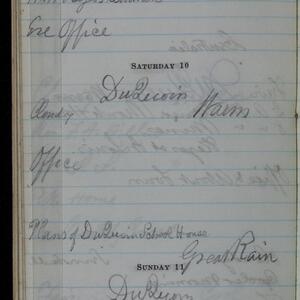 Eve Office
SATURDAY 10
DuQuoin
Cloudy Warm
Office
Plans of DuQuoin School House
Great Rain
SUNDAY 11
DuQuoin